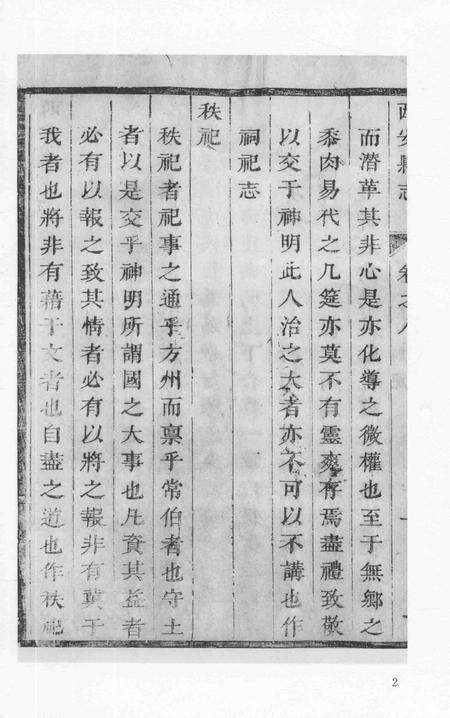 西安縣志 卷之八 一
而潛革其非心是亦化導之微權也至于無鄉之
黍肉易代之几筵亦莫不有靈爽存焉盡禮致敬
以交于神明此人治之大者亦不可以不講也作
祠祀志
秩祀
秩祀者祀事之通乎方州而禀乎常伯者也守土
者以是交乎神明所謂國之大事也凡資其益者
必有以報之致其情者必有以將之報非有冀于
我者也將非有藉于文者也自盡之道也作秩祀
2